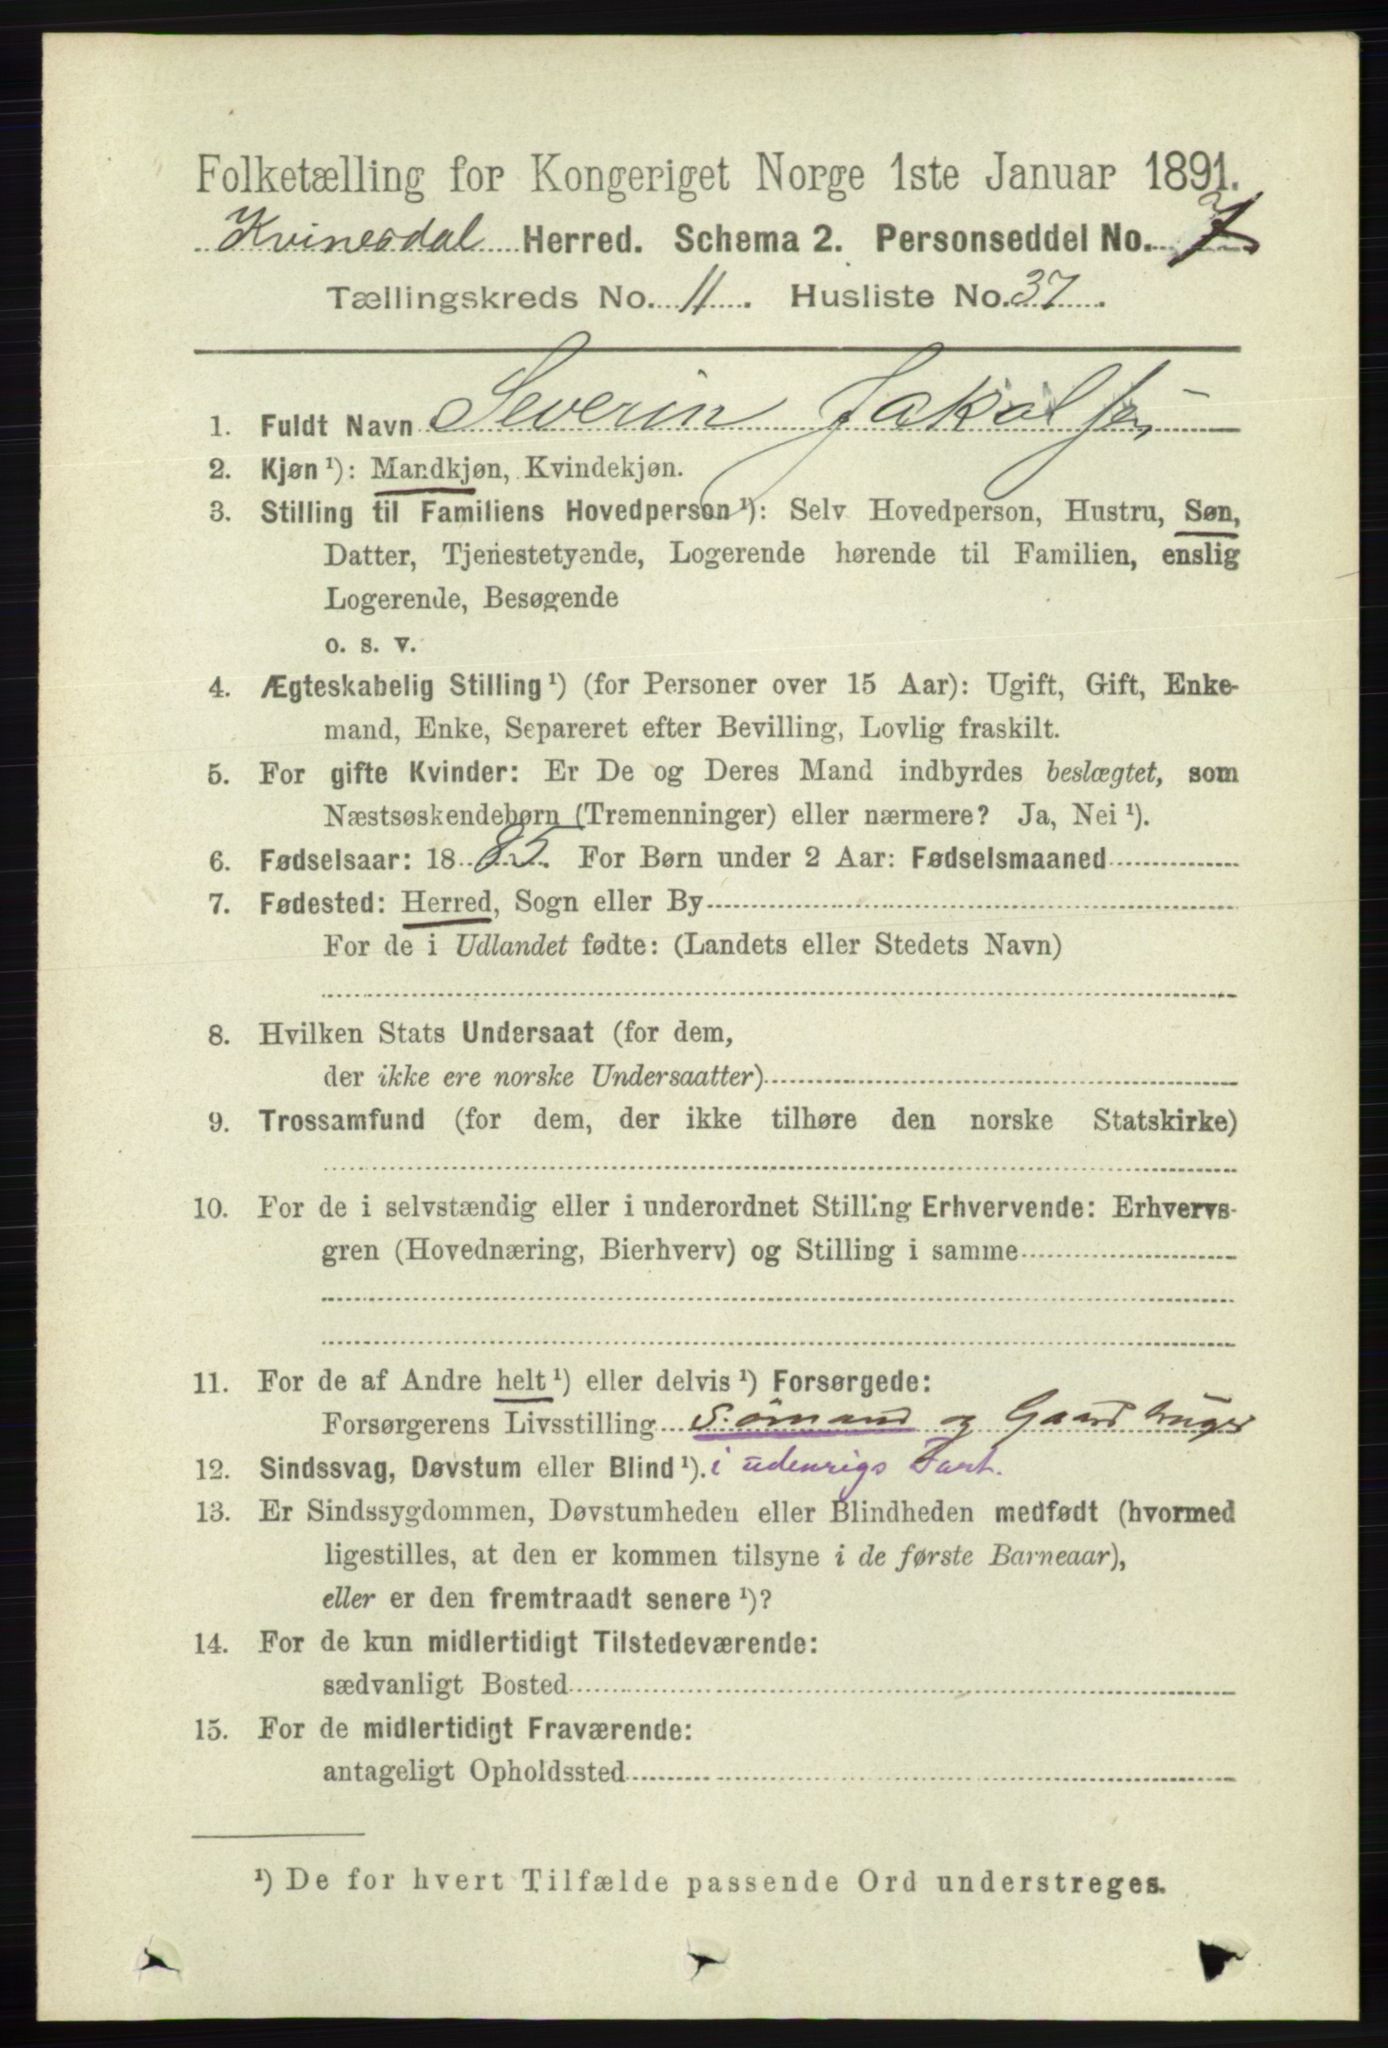 Folketælling for Kongeriget Norge 1ste Januar 1891.
Kvinesdal Herred. Schema 2. Personseddel No. 7
Tællingskreds No. 11. Husliste No. 37.
1. Fuldt Navn Severin Jakobsen
2. Kjøn ¹): Mandkjøn, Kvindekjøn.
3. Stilling til Familiens Hovedperson ¹): Selv Hovedperson, Hustru, Søn,
Datter, Tjenestetyende, Logerende hørende til Familien, enslig
Logerende, Besøgende
o. s. v.
4. Ægteskabelig Stilling ¹) (for Personer over 15 Aar): Ugift, Gift, Enke-
mand, Enke, Separeret efter Bevilling, Lovlig fraskilt.
5. For gifte Kvinder: Er De og Deres Mand indbyrdes beslægtet, som
Næstsøskendebørn (Tremenninger) eller nærmere? Ja, Nei ¹).
6. Fødselsaar: 1885. For Børn under 2 Aar: Fødselsmaaned
7. Fødested: Herred, Sogn eller By
For de i Udlandet fødte: (Landets eller Stedets Navn)
8. Hvilken Stats Undersaat (for dem,
der ikke ere norske Undersaatter)
9. Trossamfund (for dem, der ikke tilhøre den norske Statskirke)
10. For de i selvstændig eller i underordnet Stilling Erhvervende: Erhvervs-
gren (Hovednæring, Bierhverv) og Stilling i samme
11. For de af Andre helt ¹) eller delvis ¹) Forsørgede:
Forsørgerens Livsstilling Sømand og Gaardbruger
12. Sindssvag, Døvstum eller Blind ¹). i udenrigs Fart.
13. Er Sindssygdommen, Døvstumheden eller Blindheden medfødt (hvormed
ligestilles, at den er kommen tilsyne i de første Barneaar),
eller er den fremtraadt senere ¹)?
14. For de kun midlertidigt Tilstedeværende:
sædvanligt Bosted
15. For de midlertidigt Fraværende:
antageligt Opholdssted
¹) De for hvert Tilfælde passende Ord understreges.